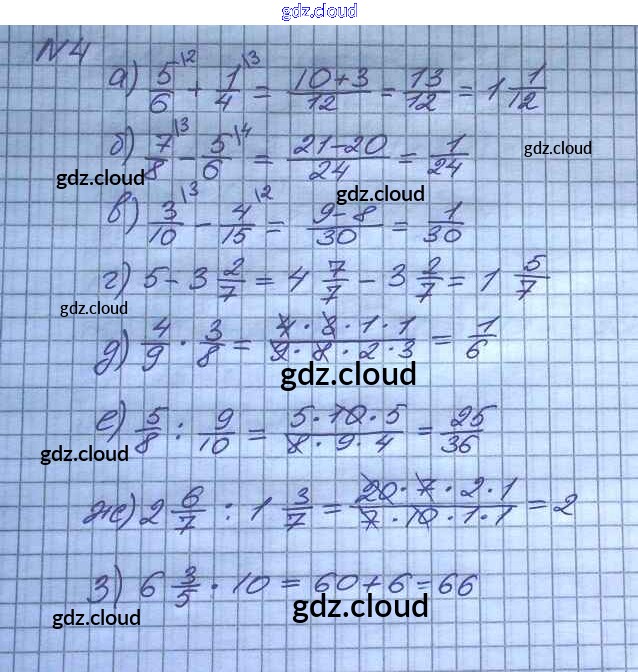 gdz.cloud
N4
а) 5/6 \2 + 1/4 \3 = 10+3/12 = 13/12 = 1 1/12
б) 7/8 \3 - 5/6 \4 = 21-20/24 = 1/24
gdz.cloud
gdz.cloud
gdz.cloud
в) 3/10 \3 - 4/15 \2 = 9-8/30 = 1/30
г) 5 - 3 2/7 = 4 7/7 - 3 2/7 = 1 5/7
gdz.cloud
д) 4/9 · 3/8 = 4·3·1·1/9·8·2·3 = 1/6
gdz.cloud
е) 5/8 : 9/10 = 5·10·5/8·9·4 = 25/36
gdz.cloud
ж) 2 6/7 : 1 3/7 = 20·7·2·1/7·10·1·1 = 2
з) 6 3/5 · 10 = 60+6 = 66
gdz.cloud
gdz.cloud